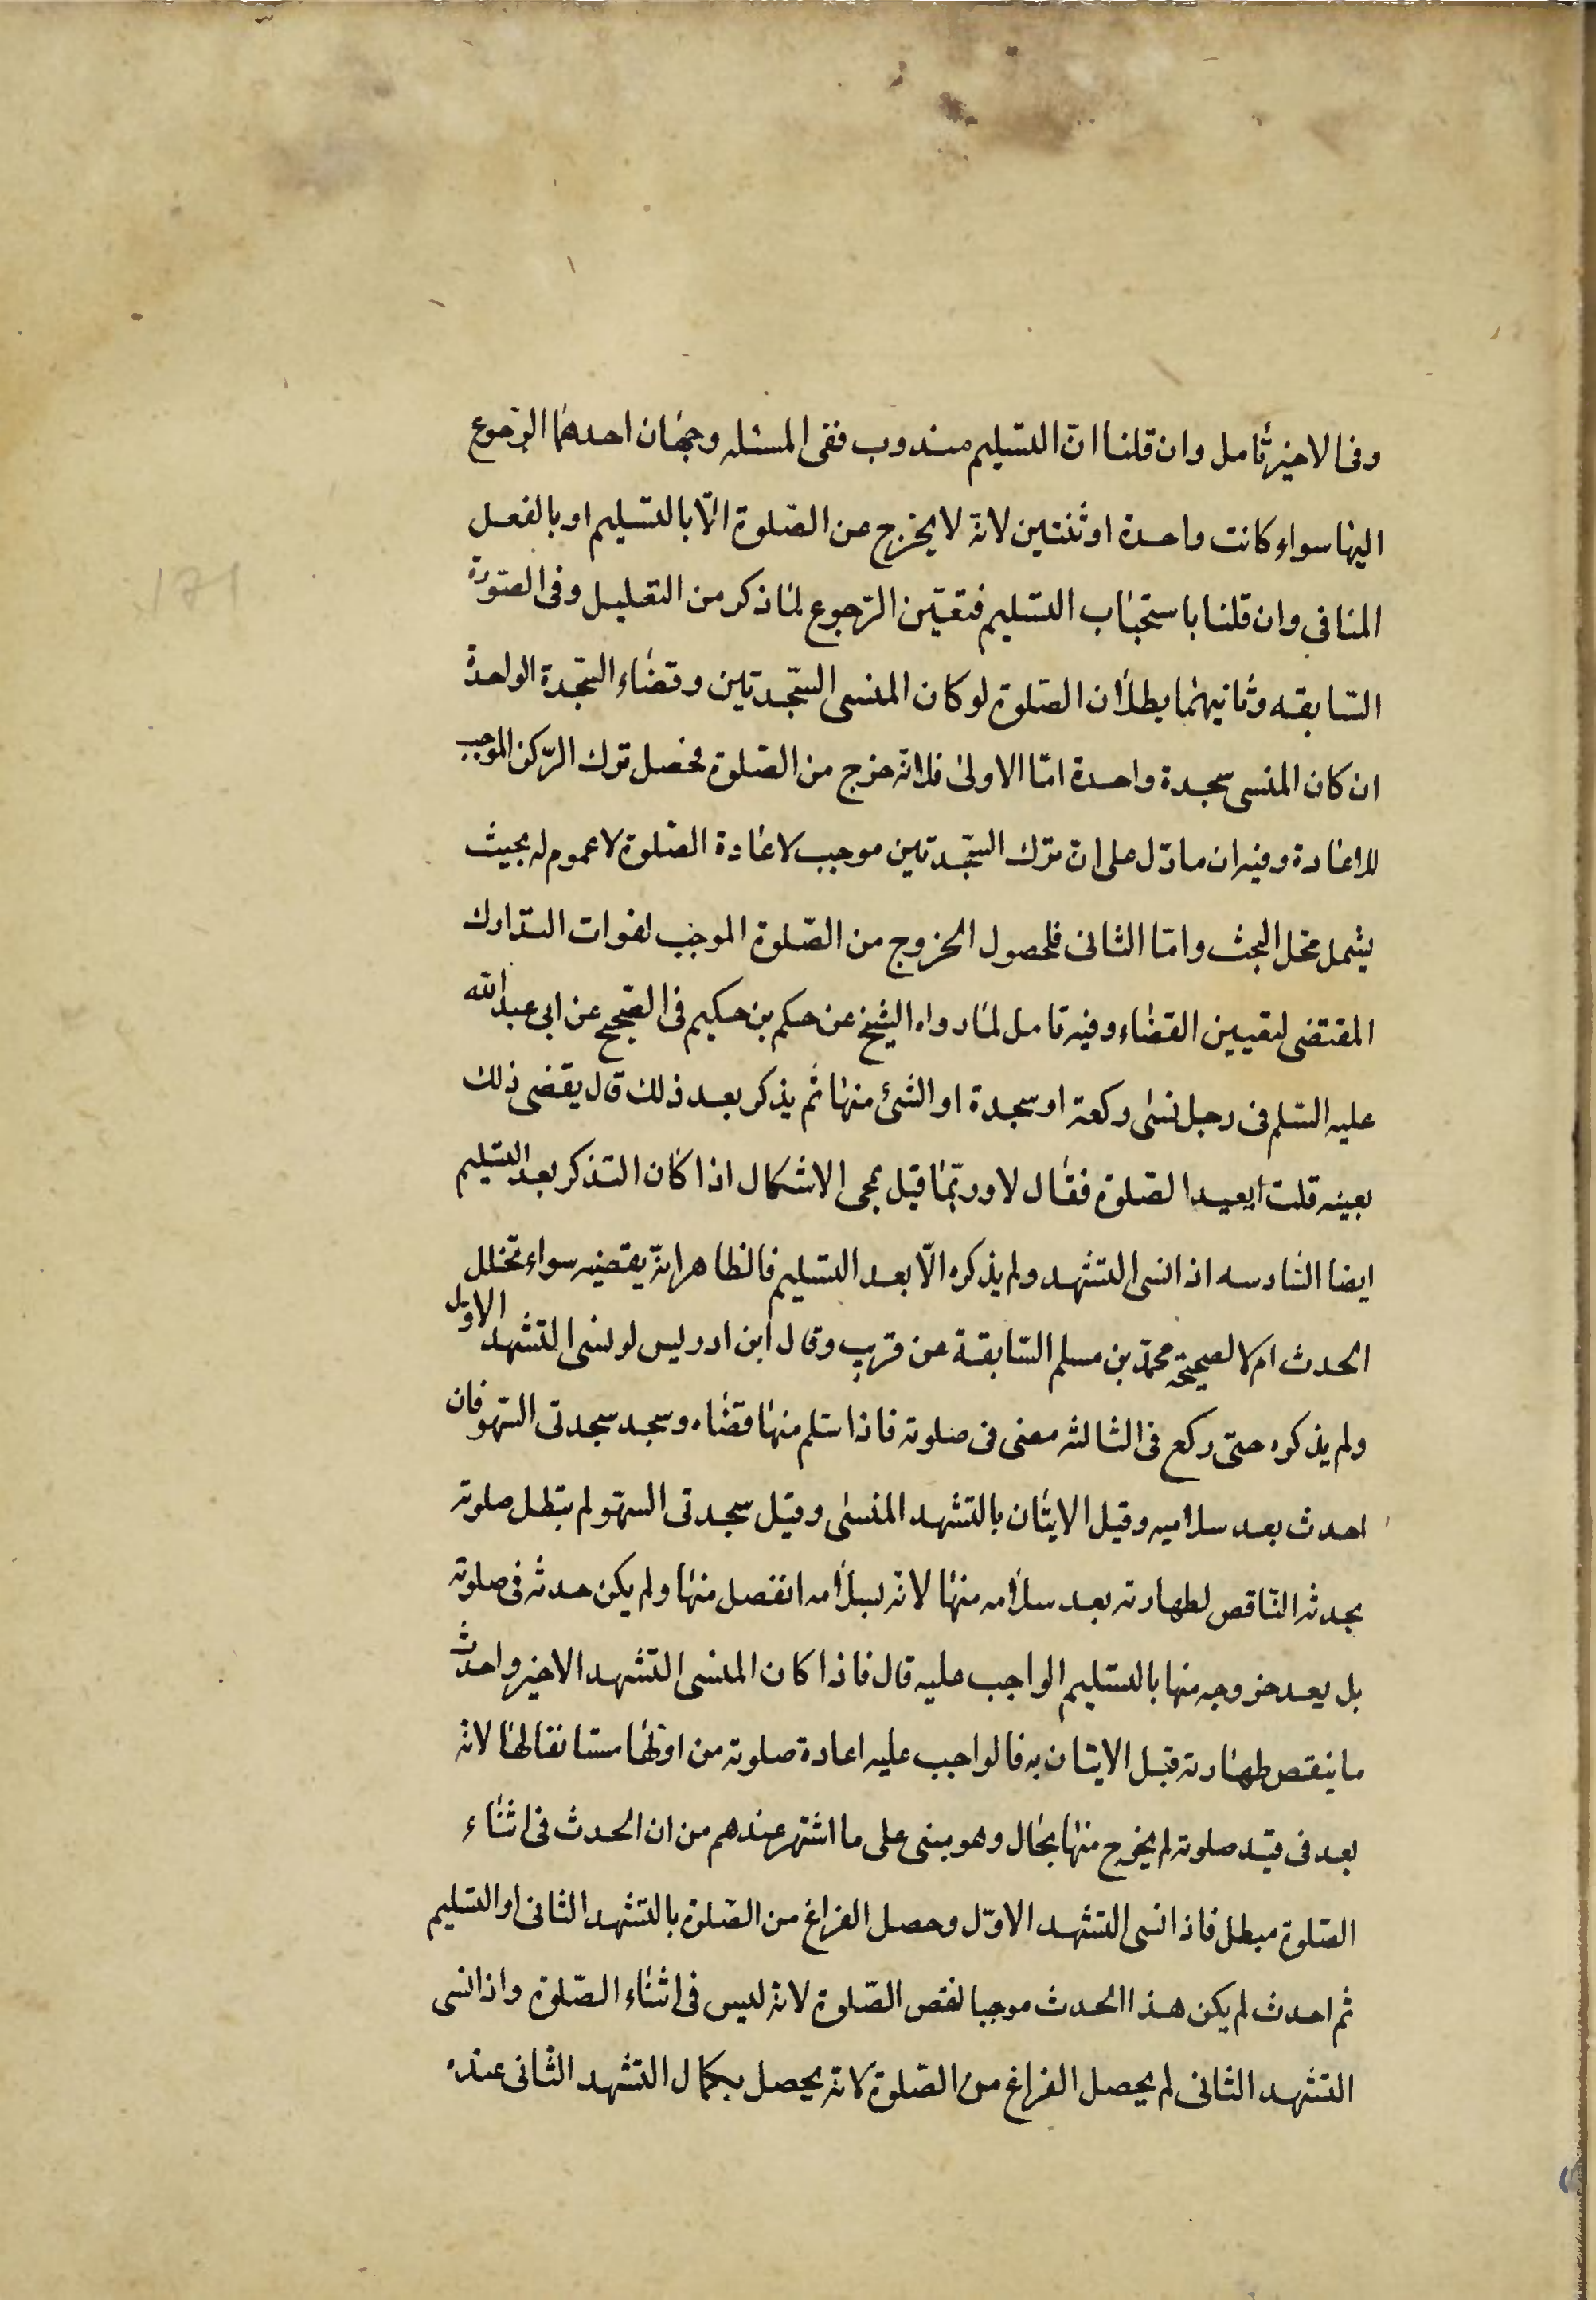 وفى الاخير تأمل وان قلنا ان التسليم مندوب ففى المسئله وجهان احدهما الرجوع
اليها سواء كانت واحدة او ثنتين لانه لا يخرج عن الصلوة الا بالتسليم او بالفعل
المنافى وان قلنا باستحباب التسليم فتعين الرجوع لما ذكر من التعليل وفى الصورة
السابقه وثانيهما بطلان الصلوة لو كان المنسى السجدتين وقضاء السجدة الواحدة
ان كان المنسى سجدة واحدة اما الاولى فلانه خرج من الصلوة فحصل ترك الركن الموجب
للاعادة وفيه ان ما دل على ان ترك السجدتين موجب لاعادة الصلوة لا عموم له بحيث
يشمل محل البحث واما الثانى فلحصول الخروج من الصلوة الموجب لفوات التدارك
المقتضى لتعيين القضاء وفيه تامل لما رواه الشيخ عن حكم بن حكيم فى الصحيح عن ابى عبد الله
عليه السلم فى رجل نسى ركعة او سجدة او الشئ منها ثم يذكر بعد ذلك قال يقضى ذلك
بعينه قلت ايعيد الصلوة فقال لا وربما قيل بمجى الاشكال اذا كان التذكر بعد التسليم
ايضا السادسه اذا نسى التشهد ولم يذكره الا بعد التسليم فالظاهر انه يقضيه سواء تخلل
الحدث ام لا لصحيحة محمد بن مسلم السابقة عن قريب وقال ابن ادريس لو نسى التشهد الاول
ولم يذكره حتى ركع فى الثالثه مضى فى صلوته فاذا سلم منها قضاه وسجد سجدتى السهو فان
احدث بعد سلاميه وقبل الايتان بالتشهد المنسى وقبل سجدتى السهو لم يبطل صلوته
بحدثه الناقص لطهارته بعد سلامه منها لانه لسلامه انفصل منها ولم يكن حدثه فى صلوته
بل بعد خروجه منها بالتسليم الواجب عليه قال فاذا كان المنسى التشهد الاخير واحدث
ما ينقص طهارته قبل الايتان به فالواجب عليه اعادة صلوته من اولها مستانفا لها لانه
بعد فى قيد صلوته لم يخرج منها بحال وهو مبنى على ما اشتهر عندهم من ان الحدث فى اثناء
الصلوة مبطل فاذا نسى التشهد الاول وحصل الفراغ من الصلوة بالتشهد الثانى او التسليم
ثم احدث لم يكن هذا الحدث موجبا لنقص الصلوة لانه ليس فى اثناء الصلوة واذا نسى
التشهد الثانى لم يحصل الفراغ من الصلوة لانه يحصل بكمال التشهد الثانى عنده